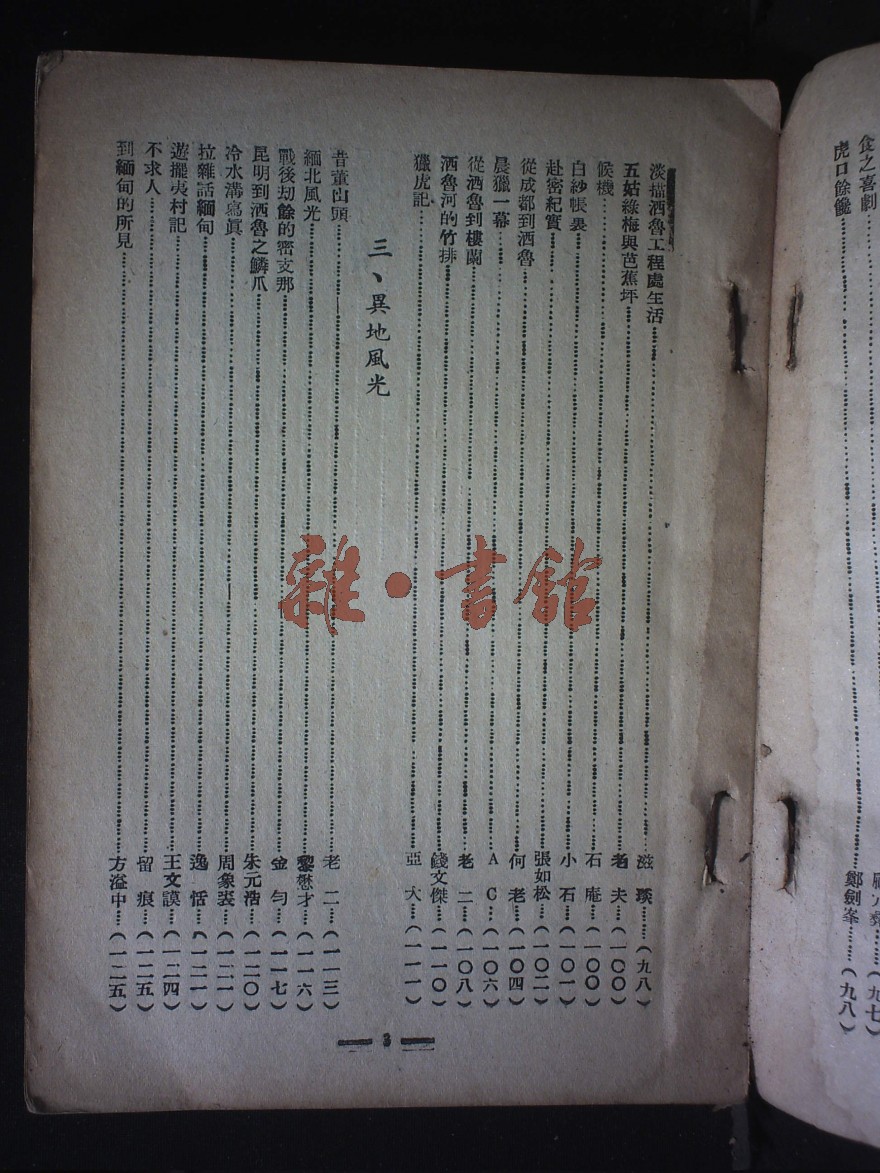 食之喜劇……(九七)
虎口餘饞……鄭劍峯……(九八)
淡描洒魯工程處生活……滋琰……(九八)
五姑綠梅與芭蕉坪……老夫……(一〇〇)
候機……石庵……(一〇〇)
白紗帳裏……小石……(一〇一)
赴密紀實……張如松……(一〇二)
從成都到洒魯……何老……(一〇四)
晨獵一幕……AC……(一〇六)
從洒魯到樓蘭……老二……(一〇八)
洒魯河的竹排……錢文傑……(一一〇)
獵虎記……亞大……(一一一)
三、異地風光
昔董山頭……老二……(一一三)
緬北風光……黎懋才……(一一六)
戰後劫餘的密支那……金勻……(一一七)
昆明到洒魯之鱗爪……朱元浩……(一二〇)
冷水溝寫眞……周象裘……(一二一)
拉雜話緬甸……逸恬……(一二一)
遊擺夷村記……王文謨……(一二四)
不求人……留痕……(一二五)
到緬甸的所見……方溢中……(一二五)
3
雜·書館